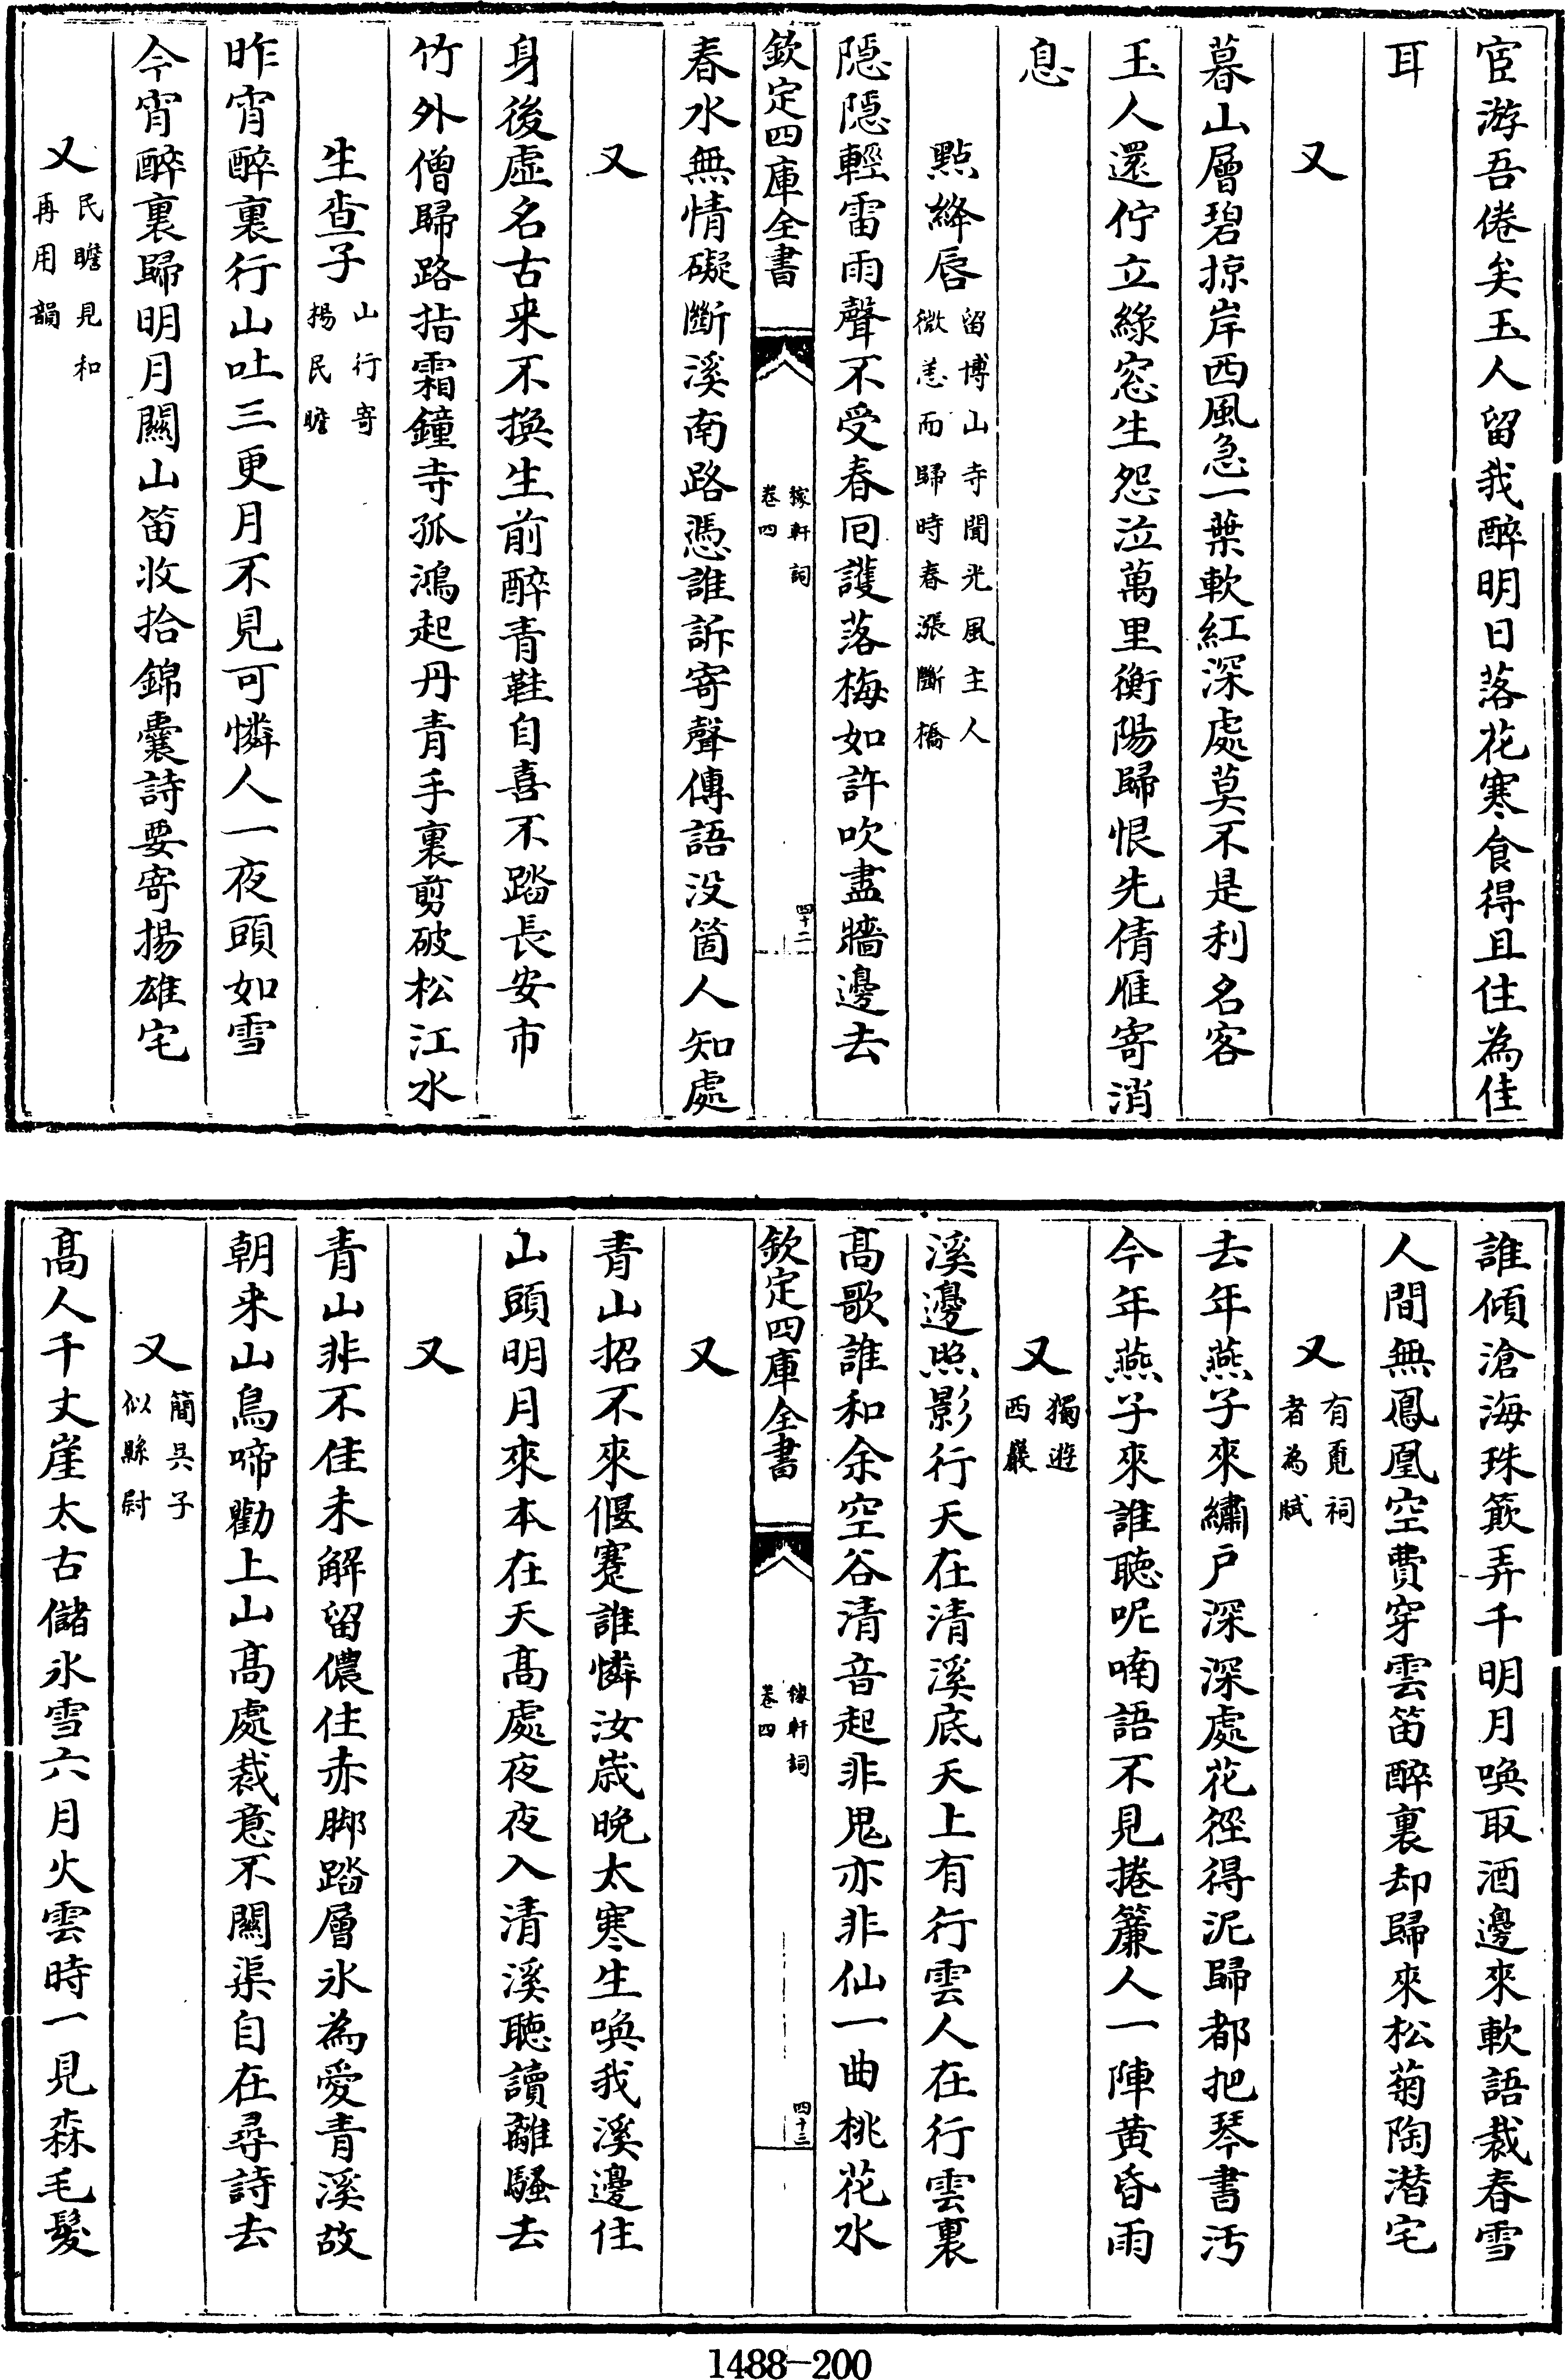 宦游吾倦矣玉人留我醉明日落花寒食得且住為佳
耳
又
暮山層碧掠岸西風急一葉軟紅深處莫不是利名客
玉人還佇立綠窓生怨泣萬里衡陽歸恨先倩雁寄消
息
點絳唇留博山寺聞光風主人
微恙而歸時春漲斷橋
隱隱輕雷雨聲不受春回護落梅如許吹盡牆邊去
欽定四庫全書
稼軒詞
卷四
四十二
春水無情礙斷溪南路憑誰訴寄聲傳語没箇人知處
又
身後虛名古来不換生前醉青鞋自喜不踏長安市
竹外僧歸路指霜鐘寺孤鴻起丹青手裏剪破松江水
生查子山行寄
楊民瞻
昨宵醉裏行山吐三更月不見可憐人一夜頭如雪
今宵醉裏歸明月關山笛收拾錦囊詩要寄揚雄宅
又民瞻見和
再用韻
誰傾滄海珠簸弄千明月喚取酒邊來軟語裁春雪
人間無鳳凰空費穿雲笛醉裏却歸來松菊陶潛宅
又有覓詞
者為賦
去年燕子來繡户深深處花徑得泥歸都把琴書汚
今年燕子來誰聽呢喃語不見捲簾人一陣黃昏雨
又獨遊
西巖
溪邊照影行天在清溪底天上有行雲人在行雲裏
高歌誰和余空谷清音起非鬼亦非仙一曲桃花水
欽定四庫全書
稼軒詞
卷四
四十三
又
青山招不來偃蹇誰憐汝歲晚太寒生喚我溪邊住
山頭明月來本在天高處夜夜入清溪聽讀離騷去
又
青山非不佳未解留儂住赤脚踏層氷為愛青溪故
朝来山鳥啼勸上山高處裁意不關渠自在尋詩去
又簡吳子
似縣尉
高人千丈崖太古儲氷雪六月火雲時一見森毛髮
1488-200